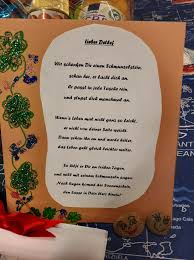 lieber Detlef
Wir schenken Dir einen Schmunzelstein,
schau her, er lacht dich an.
Er passt in jede Tasche rein
und stupst dich manchmal an.
Wenn's Leben mal nicht ganz so leicht,
er nicht von deiner Seite weicht.
Dann schau ihn an und werde
das Leben geht gleich leichter weiter.
So hilft er Dir an trüben Tagen,
und wird mit seinem Schmunzeln sagen:
Nach Regen kommt der Sonnenschein,
den lasse in Dein Herz hinein!